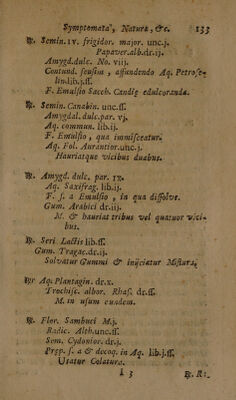 Symptomata, Natura, &c. 133
℞. Semin. IV. frigidor. major. unc.j.
Papaver.alb.dr.ij.
Amygd.dulc. No. viij.
Contund. sensim, affundendo Aq. Petrose-
lin.lib.ß.
F. Emulsio Sacch. Candiç edulcoranda.
℞. Semin. Canabin. unc.ß.
Amygdal. dulc.par. vj.
Aq. commun. lib.ij.
F. Emulsio, qua immisceatur.
Aq. Fol. Aurantior.unc.j.
Hauriatque vicibus duabus.
℞. Amygd. dulc. par. ix.
Aq. Saxifrag. lib.ij.
F. s. a Emulsio, in qua dissolve.
Gum. Arabici dr.iij.
M. & hauriat tribus vel quatuor vici-
bus.
℞. Seri Lactis lib.ß.
Gum. Tragac.dr.ij.
Solvatur Gummi & injiciatur Misturæ.
℞ Aq. Plantagin. dr.x.
Trochisc. albor. Rhas. dr.ß.
M. in usum eundem.
℞. Flor. Sambuci M.j.
Radic. Alth.unc.ß.
Sem. Cydonior. dr.j.
Præp. s. a & decoq. in Aq. lib.j.ß.
Utatur Colatura.
I 3 ℞. R.